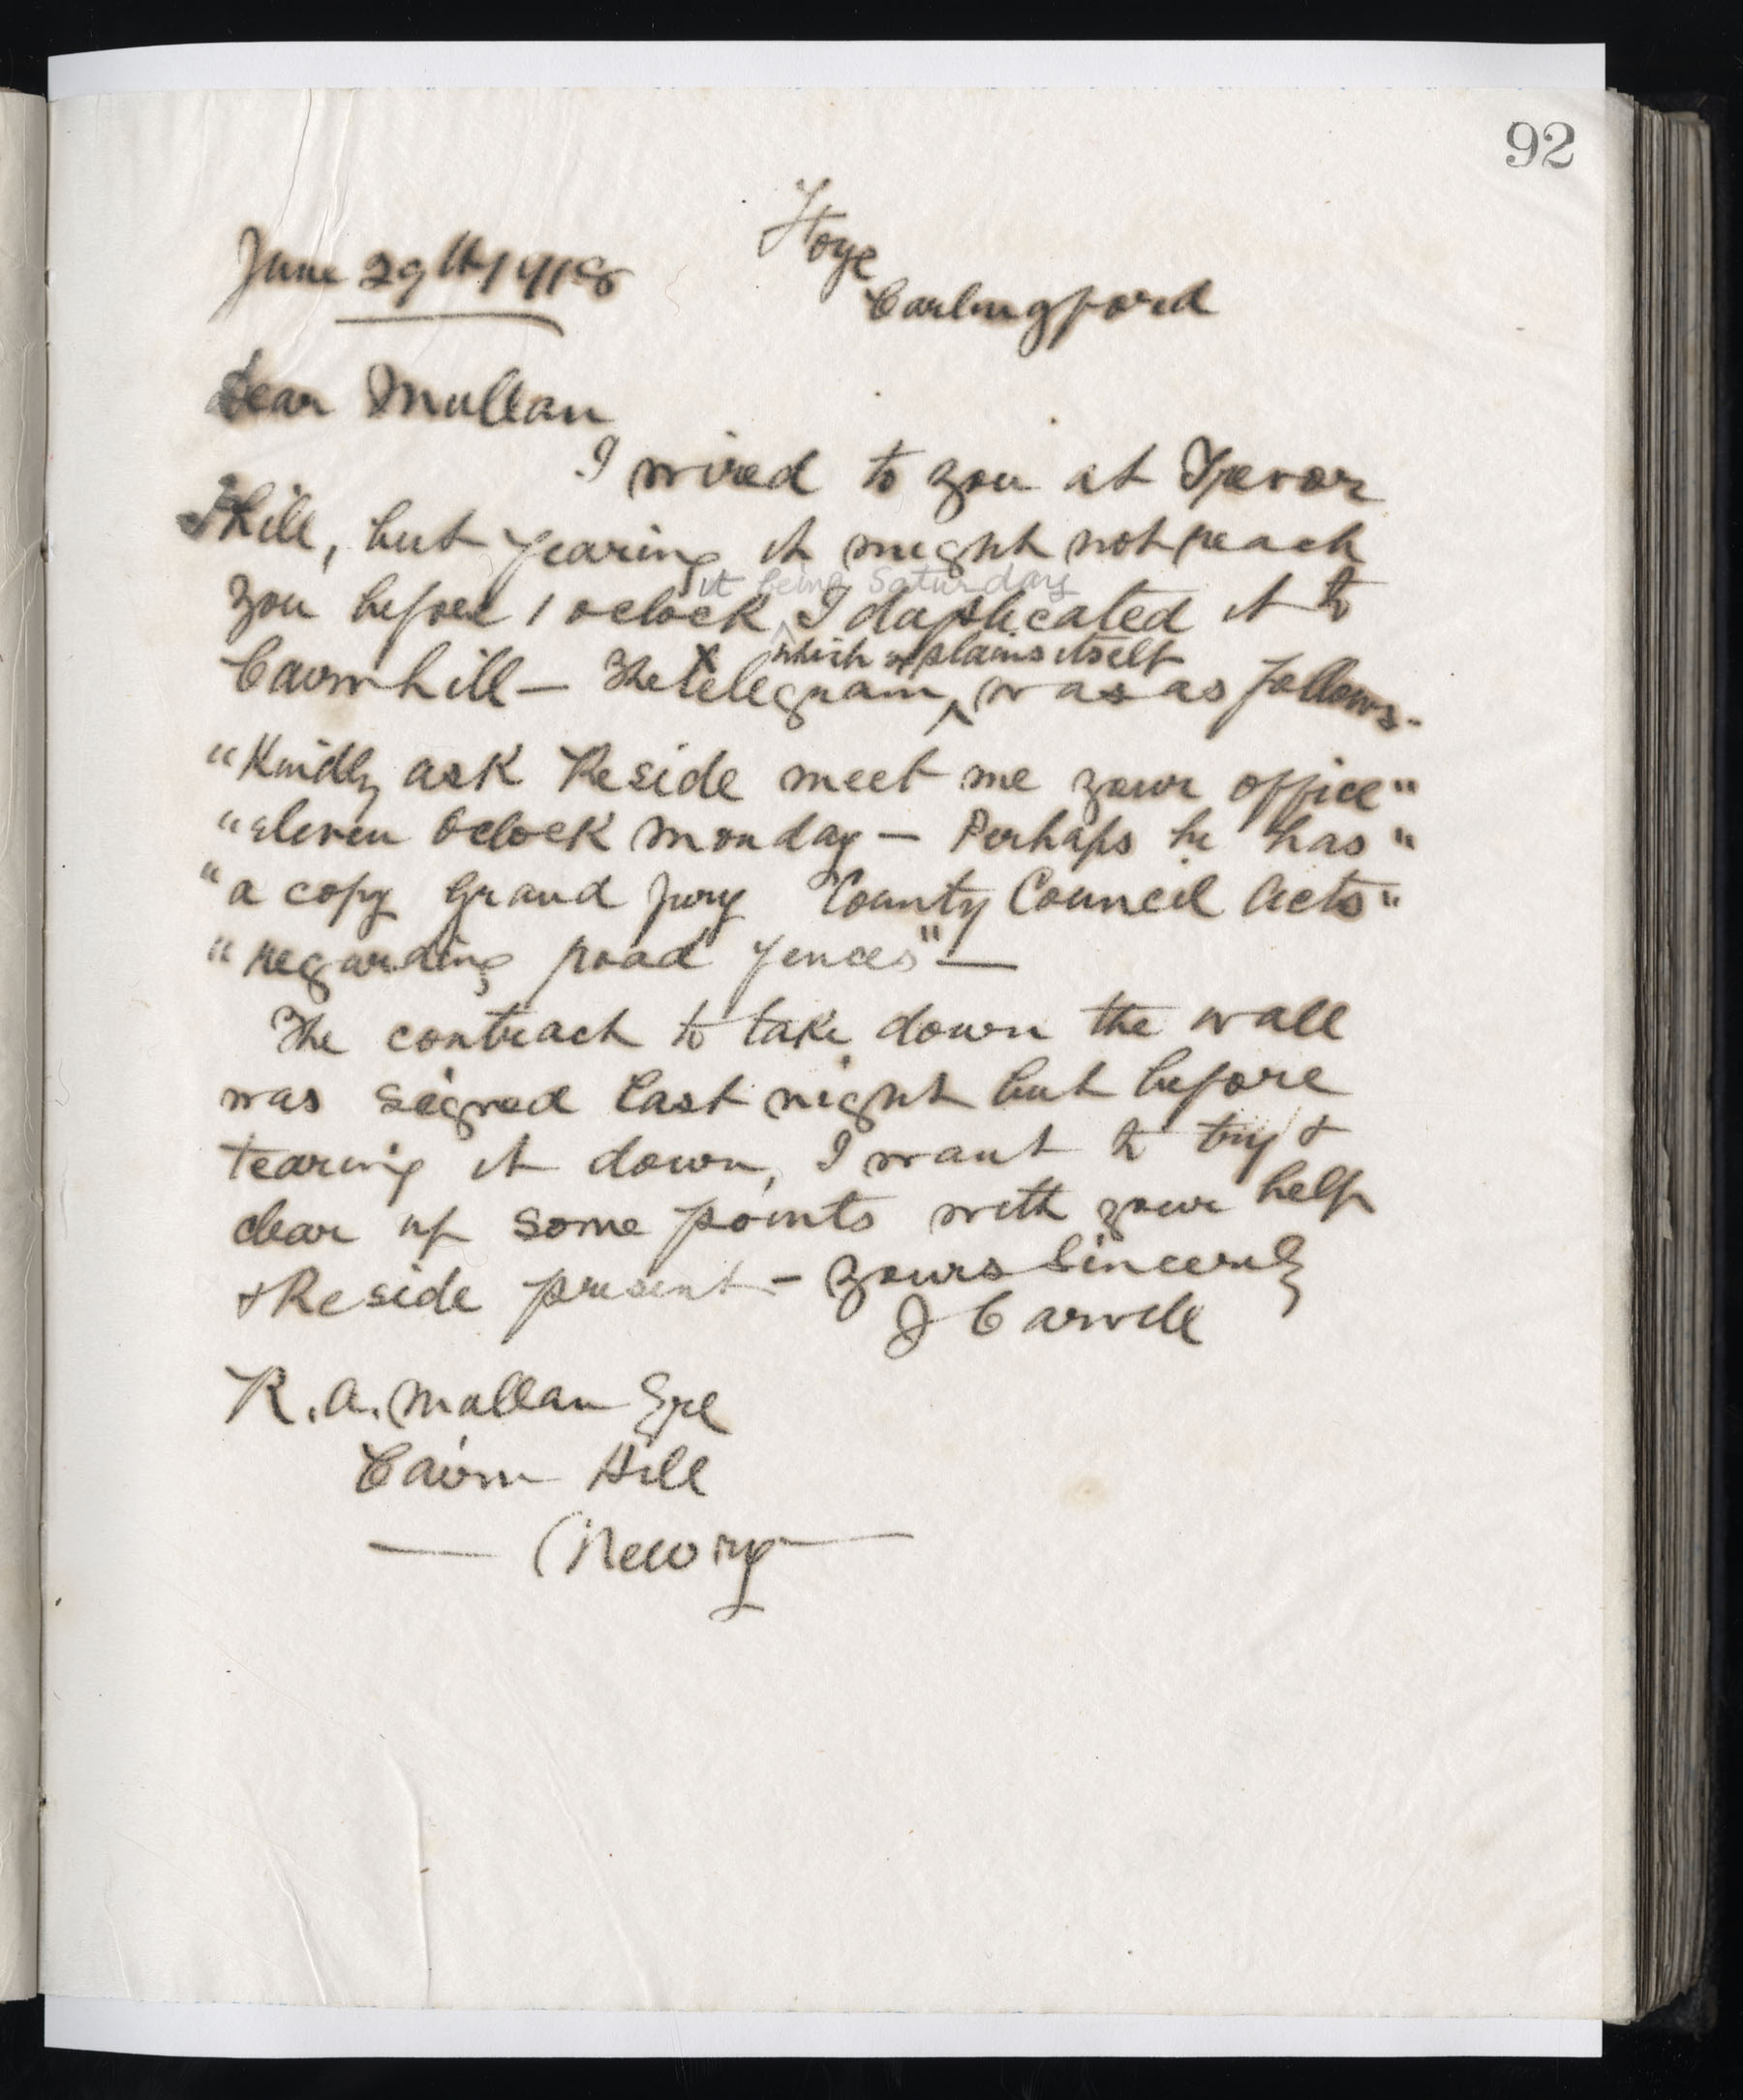 92
June 29th/1918
Hoye
Carlingford
Dear Mullan
I wired to you at Trevor
Hill, but fearing it might not reach
it being Saturday
you before 1 oclock ^ I duplicated it to
which explains itself
Cairnhill — The telegram ^ was as follows -
"Kindly ask Reside meet me your office"
"eleven oclock Monday — Perhaps he has"
"a copy Grand Jury County Council Acts"
"regarding road fences" —
The contract to take down the wall
was signed last night but before
tearing it down, I want to try &
clear up some points with your help
& Reside present - yours Sincerely
J Carvill
R. A. Mullan Esqre
Cairn Hill
— Newry —